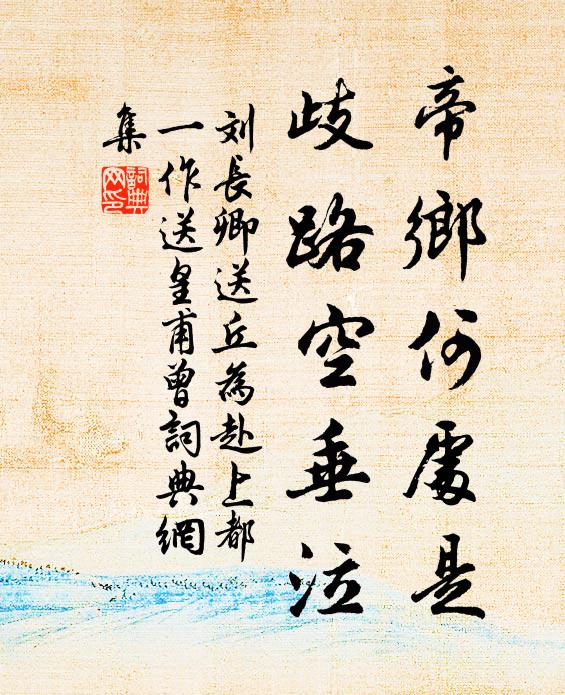 帝鄉何處是
歧路空垂泣
刘長卿送丘為赴上都
一作送皇甫曾詞典網
集
詞典网印